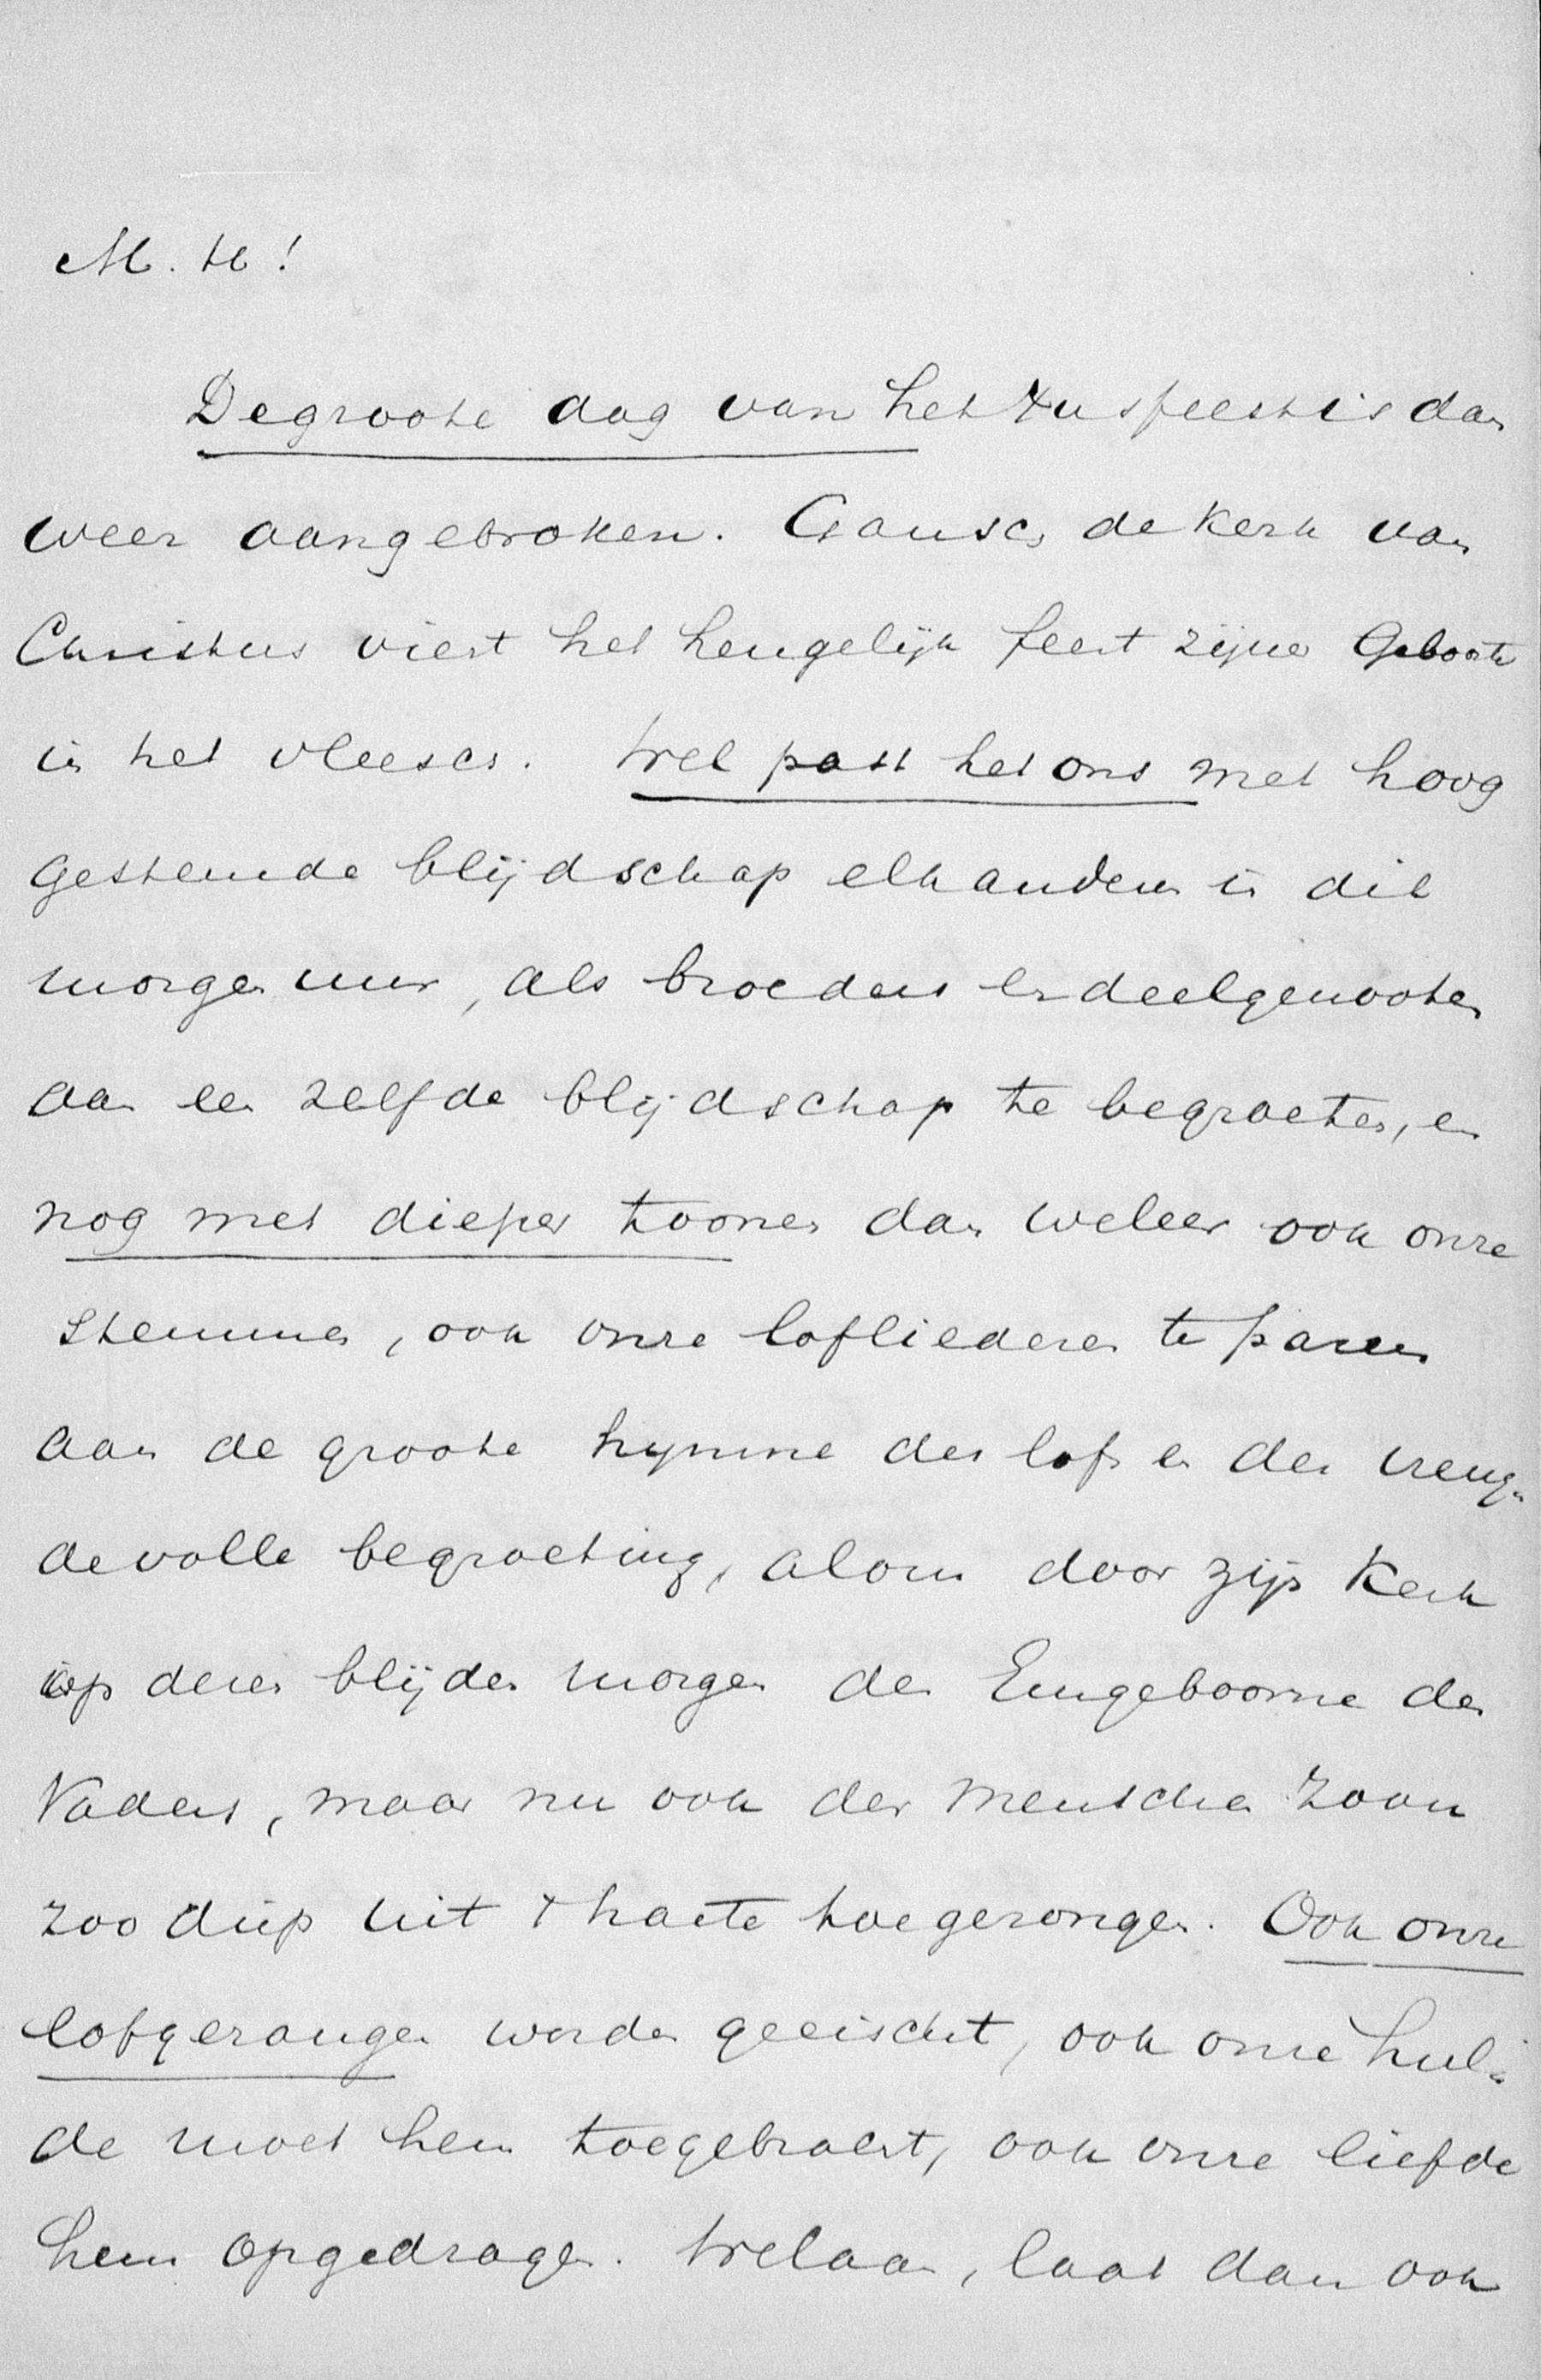 M. H!
De groote dag van het Xusfeest is dan
weer aangebroken. Gansch de kerk van
Christus viert het heugelijk feest zijner Geboorte
in het vleesch. Wel past het ons met hoog
gestemde blijdschap elkanderen in dit
morgen uur, als broeders en deelgenooten
aan een zelfde blijdschap te begroeten, en
nog met dieper toonen dan weleer ook onze
stemmen, ook onze lofliederen te paren
aan de groote hymne des lofs en der vreug-
devolle begroeting, alom door zijn Kerk
op dezen blijden morgen den Eengeboorne des
Vaders, maar nu ook der menschen Zoon
zoo diep uit 't harte toegezongen. Ook onze
lofgezangen worden geeischt, ook onze hul-
de moet hem toegebracht, ook onze liefde
hem opgedragen. Welaan, laat dan ook